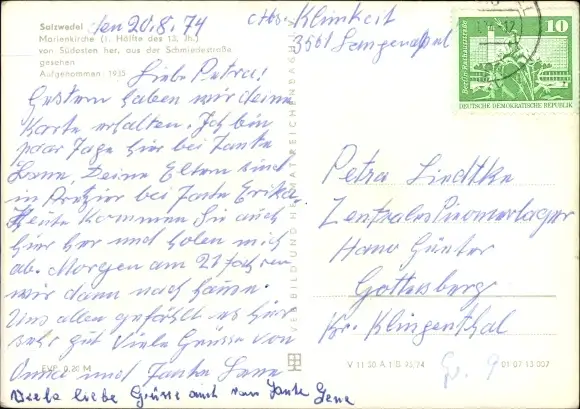 Salzwedel
Marienkirche (1. Hälfte des 13. Jh.)
von Südosten her, aus der Schmiedestraße
gesehen
Aufgenommen 1935
den 20.8.74
Abs. Klimkeit
3561 Langenapel
Liebe Petra!
Gestern haben wir deine
Karte erhalten. Ich bin
paar Tage hier bei Tante
Lena, Deine Eltern sind
in bei Tante Erika.
Heute kommen Sie auch
hier her und holen mich
ab. Morgen am 21 fahren
wir dann nach Hause.
Uns allen gefählt es hier
sehr gut Viele Grüsse von
Onkel und Tante Lena
Viele liebe Grüsse auch von Tante Lena
EVP 0,20 M
VEB BILD UND HEIMAT REICHENBACH
V 11 50 A 1 B 74
01 07 13 007
Gr. 9
Berlin-Rathausstrasse
10
DEUTSCHE DEMOKRATISCHE REPUBLIK
Petra Liedtke
Zentrales Pionierlager
Hans Günter
Gottesberg
Kr. Klingenthal